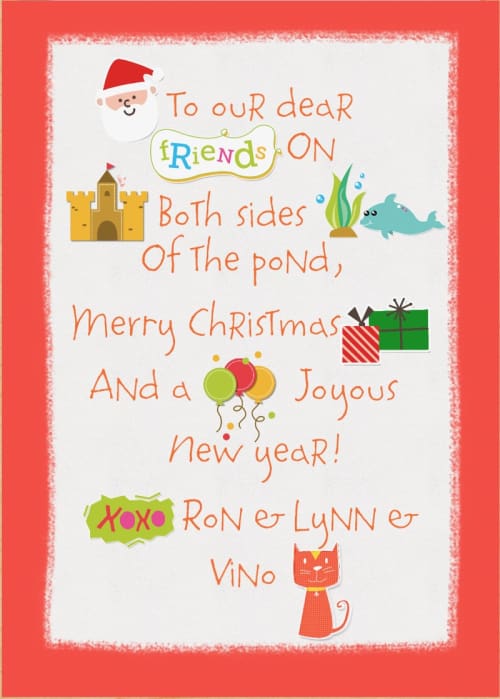 To our dear
fRieNds ON
Both sides
Of The poNd,
Merry ChRisTmas
ANd a Joyous
New yeaR!
XOXO RoN & LyNN &
ViNo